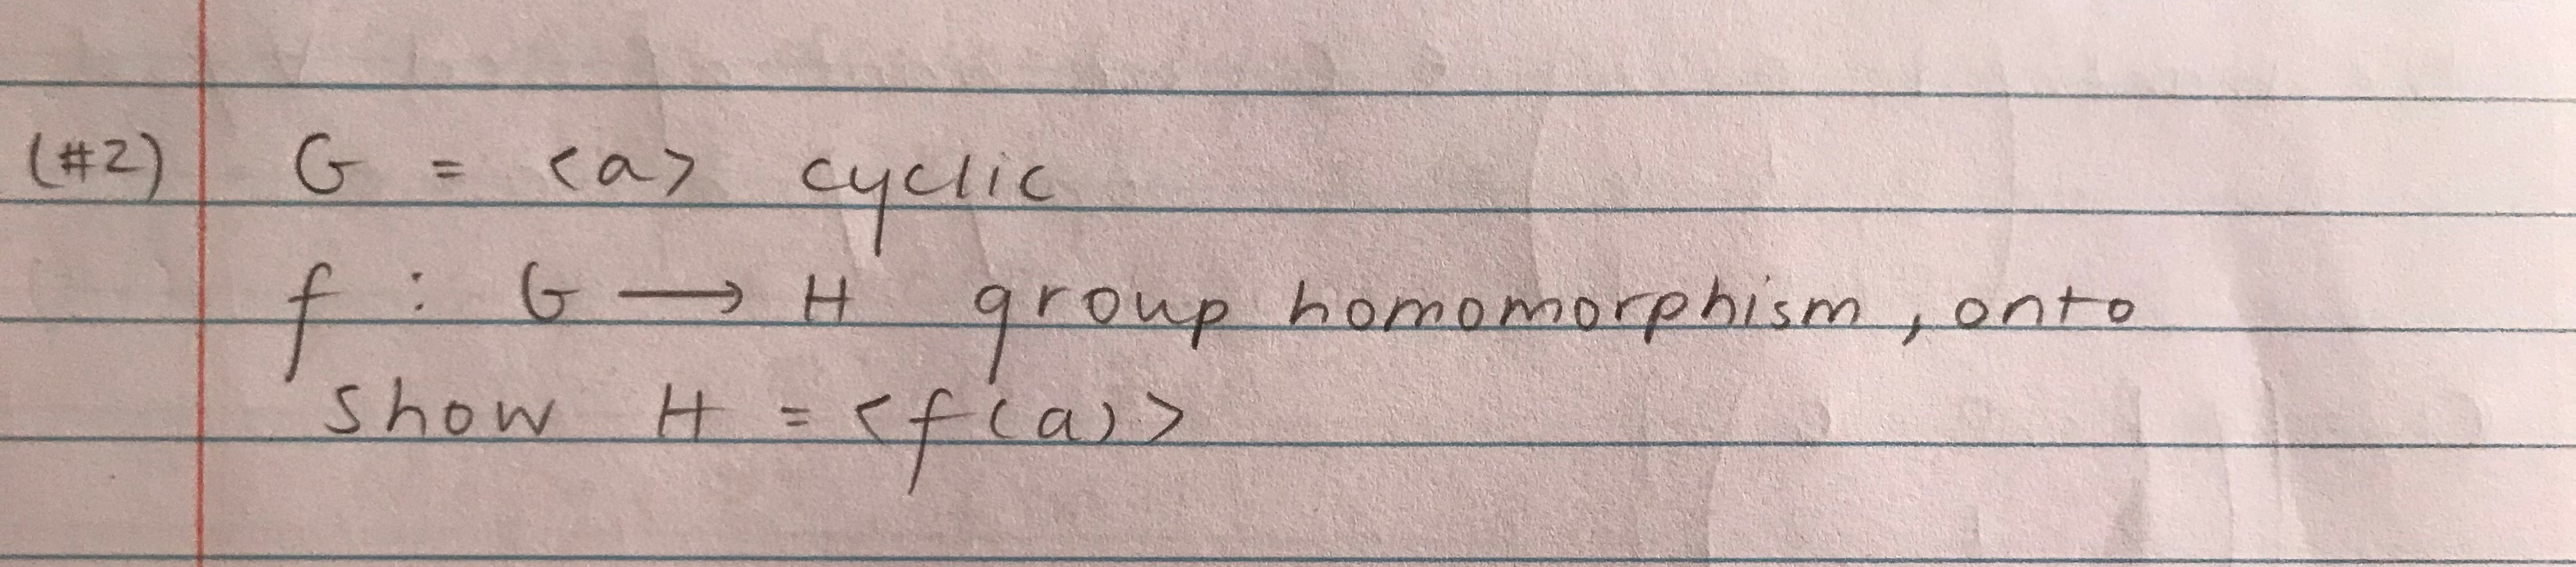 (#2) G = <a> cyclic
f : G → H group homomorphism, onto
show H = <f(a)>